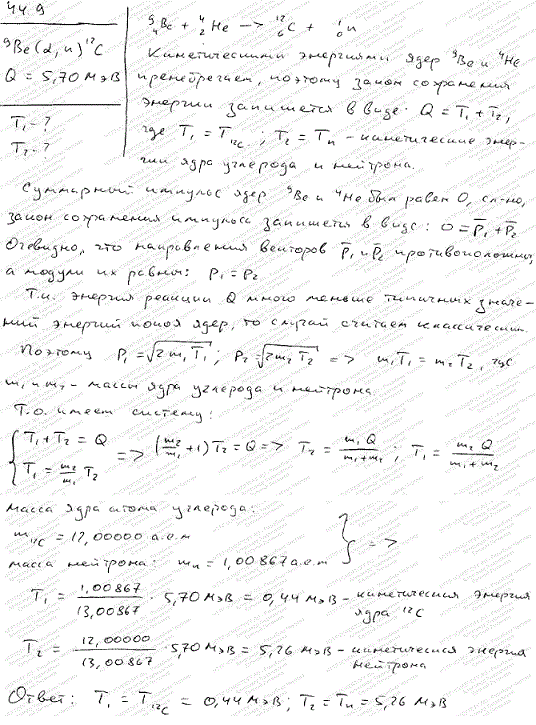 44.9
⁹Be(α, n)¹²C
Q = 5,70 МэВ
T₁ - ?
T₂ - ?
⁹₄Be + ⁴₂He → ¹²₆C + ¹₀n
Кинетическими энергиями ядер ⁹Be и ⁴He
пренебрегаем, поэтому закон сохранения
энергии запишется в виде: Q = T₁ + T₂,
где T₁ = T₁₂C ; T₂ = Tn - кинетические энер-
гии ядра углерода и нейтрона.
Суммарный импульс ядер ⁹Be и ⁴He был равен 0, сл-но,
закон сохранения импульса запишется в виде: 0 = p̄₁ + p̄₂
Очевидно, что направления векторов p̄₁ и p̄₂ противоположны,
а модули их равны: p₁ = p₂
Т.к. энергия реакции Q много меньше типичных значе-
ний энергий покоя ядер, то случай считаем классическим.
Поэтому p₁ = √(2m₁T₁) ; p₂ = √(2m₂T₂) => m₁T₁ = m₂T₂, где
m₁ и m₂ - массы ядра углерода и нейтрона.
Т.о. имеем систему:
{ T₁ + T₂ = Q
T₁ = m₂/m₁ T₂ => (m₂/m₁ + 1) T₂ = Q => T₂ = m₁Q/(m₁ + m₂) ; T₁ = m₂Q/(m₁ + m₂)
масса ядра атома углерода:
m₁₂C = 12,00000 а.е.м
масса нейтрона: mn = 1,00867 а.е.м } =>
T₁ = 1,00867/13,00867 · 5,70 МэВ = 0,44 МэВ - кинетическая энергия
ядра ¹²C
T₂ = 12,00000/13,00867 · 5,70 МэВ = 5,26 МэВ - кинетическая энергия
нейтрона
Ответ: T₁ = T₁₂C = 0,44 МэВ ; T₂ = Tn = 5,26 МэВ